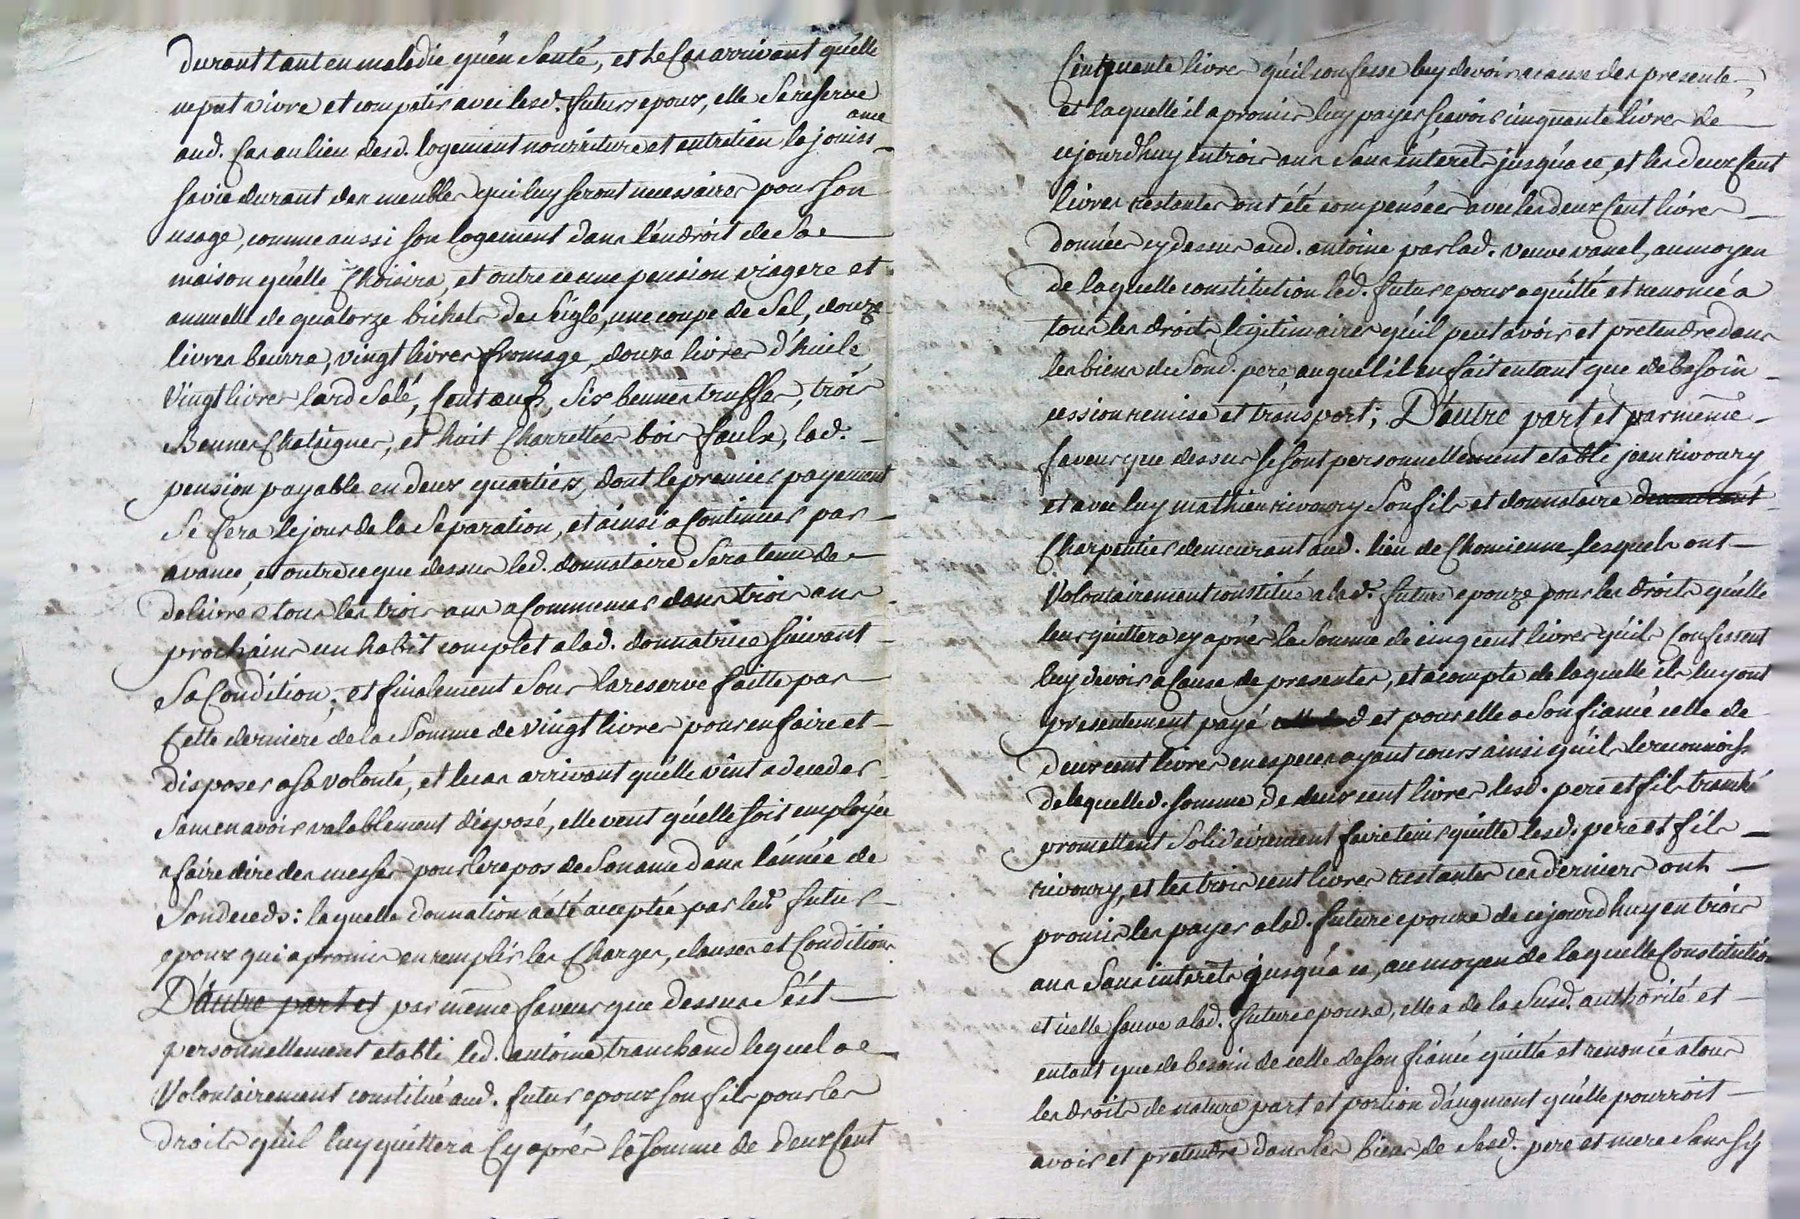 durant tant en maladie qu'en santé, et le cas arrivant qu'elle
ne put vivre et compatir avec lesd. futurs epoux, elle se reserve
aud. cas au lieu desd. logement nourriture et entretien la jouiss-
ance
sa vie durant des meubles qui luy seront necessaires pour son
usage, comme aussi son logement dans l'endroit de sa
maison qu'elle choisira, et outre ce une pension viagere et
annuelle de quatorze bichets de seigle, une coupe de sel, douze
livres beurre, vingt livres fromage, douze livres d'huile
vingt livres lard salé, cent œufs, six bennes truffes, trois
Bennes chataignes, et huit charrettées bois faulx, lad.
pension payable en deux quartiers, dont le premier payement
se fera le jour de la separation, et ainsi a continuer par
avance, et outre ce que dessus led. donnataire sera tenu de
delivrer tous les trois ans a commencer dans trois ans
prochains un habit complet a lad. donnatrice suivant
sa condition; et finalement sous la reserve faitte par
cette derniere de la somme de vingt livres pour en faire et
disposer a sa volonté, et le cas arrivant qu'elle vint a deceder
sans en avoir valablement disposé, elle veut qu'elle soit employée
a faire dire des messes pour le repos de son ame dans l'année de
son deceds: laquelle donnation a été acceptée par led. futur
epoux qui a promis en remplir les charges, clauses et conditions
D'autre part et par même faveur que dessus s'est
personnellement etabli led. antoine tranchand lequel a
volontairement constitué aud. futur epoux son fils pour les
droits qu'il luy quittera cy après la somme de deux cent
cinquante livres qu'il confesse luy devoir a cause des presentes,
et laquelle il a promis luy payer sçavoir cinquante livres de
cejourd'huy en trois ans sans interets jusqu'a ce, et les deux cent
livres restantes ont été compensées avec les deux cent livres
données cy dessus aud. antoine par lad. veuve vanel, au moyen
de laquelle constitution led. futur epoux a quitté et renoncé a
tous les droits legitimaires qu'il peut avoir et pretendre dans
les biens de sond. pere, auquel il en fait entant que de besoin
cession remise et transport; D'autre part et par même
faveur que dessus se sont personnellement etabli jean rivoury
et avec luy mathieu rivoury son fils et donnataire demeurant
charpentier demeurant aud. lieu de chomienne, lesquels ont
volontairement constitué a lad. future epouze pour les droits qu'elle
leur quittera cy après la somme de cinq cent livres qu'ils confessent
luy devoir a cause de presentes, et a compte de laquelle ils luy ont
presentement payé et pour elle a son fiancé celle de
deux cent livres en especes ayant cours ainsi qu'ils le reconnoiss
de laquelle d. somme de deux cent livres lesd. pere et fils tranch
promettent solidairement faire tenir quitte lesd. pere et fils
rivoury, et les trois cent livres restantes ces derniers ont
promis les payer a lad. future epouze de cejourd'huy en trois
ans sans interets jusqu'a ce, au moyen de laquelle constitution
et icelle sauve a lad. future epouze, elle a de la susd. authorité et
entant que de besoin de celle de son fiancé quitté et renoncé a tous
les droits de nature part et portion d'augment qu'elle pourroit
avoir et pretendre dans les biens de sesd. pere et mere sans s'y